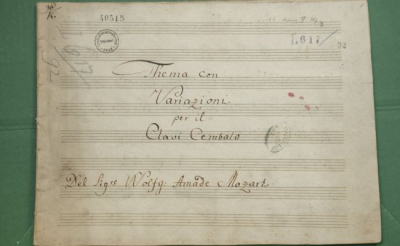 40515
F.617
92
917
92
Thema con
Variazioni
per il
Clavi Cembalo
Del Sigre Wolfg: Amade Mozart